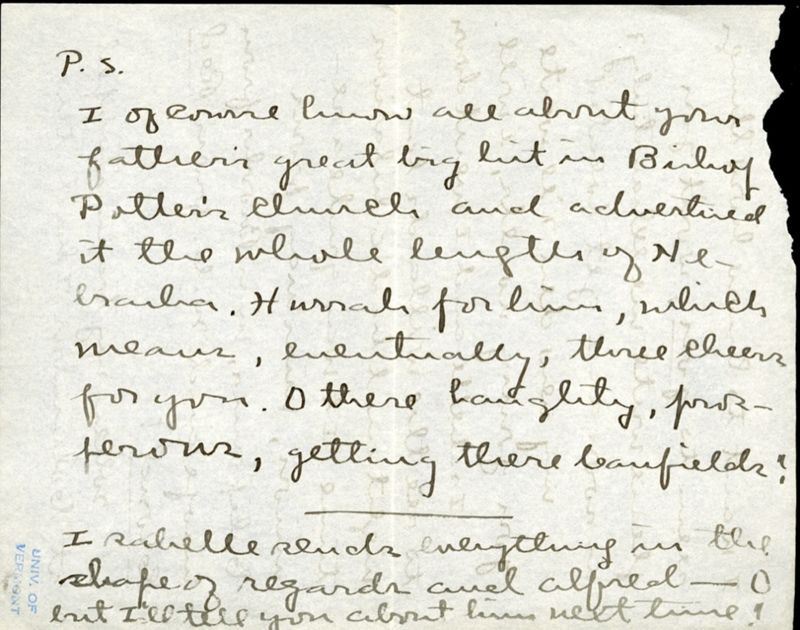 P. S.
I of course know all about your
father's great big hit in Bishop
Potter's church and advertised
it the whole length of Ne-
braska. Hurrah for him, which
means, eventually, three cheers
for you. O these haughty, pros-
perous, getting there Canfields!
Isabelle sends everything in the
shape of regards and Alfred — O
but I'll tell you about him next time!
UNIV. OF
VERMONT